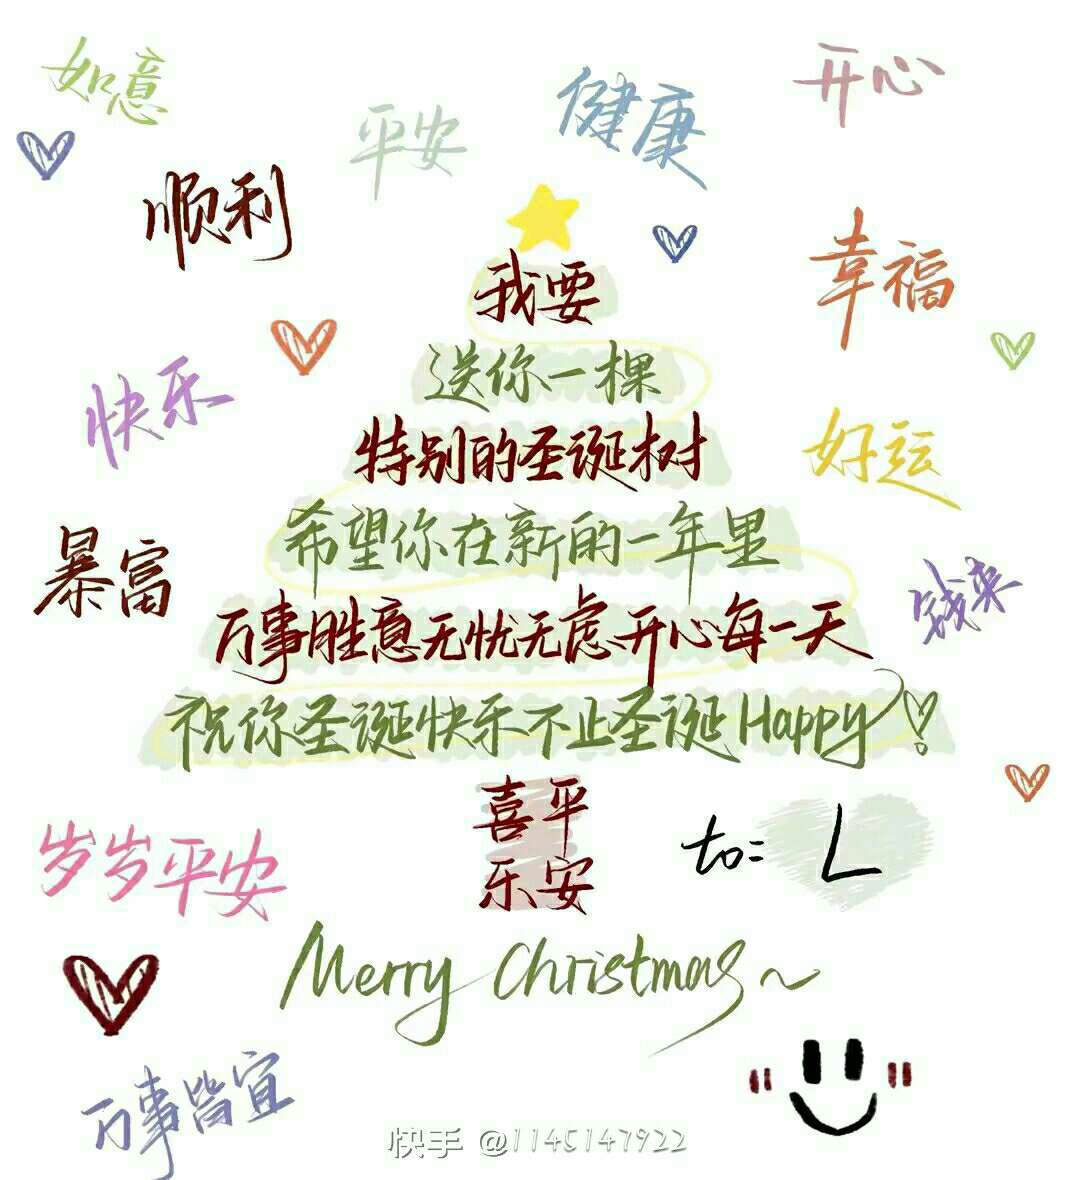 如意
平安
健康
开心
顺利
幸福
我要
送你一棵
快乐
特别的圣诞树
好运
希望你在新的一年里
暴富
钱来
万事胜意无忧无虑开心每一天
祝你圣诞快乐不止圣诞Happy
喜平
乐安
to: L
岁岁平安
Merry Christmas~
万事皆宜
快手 @1145147922